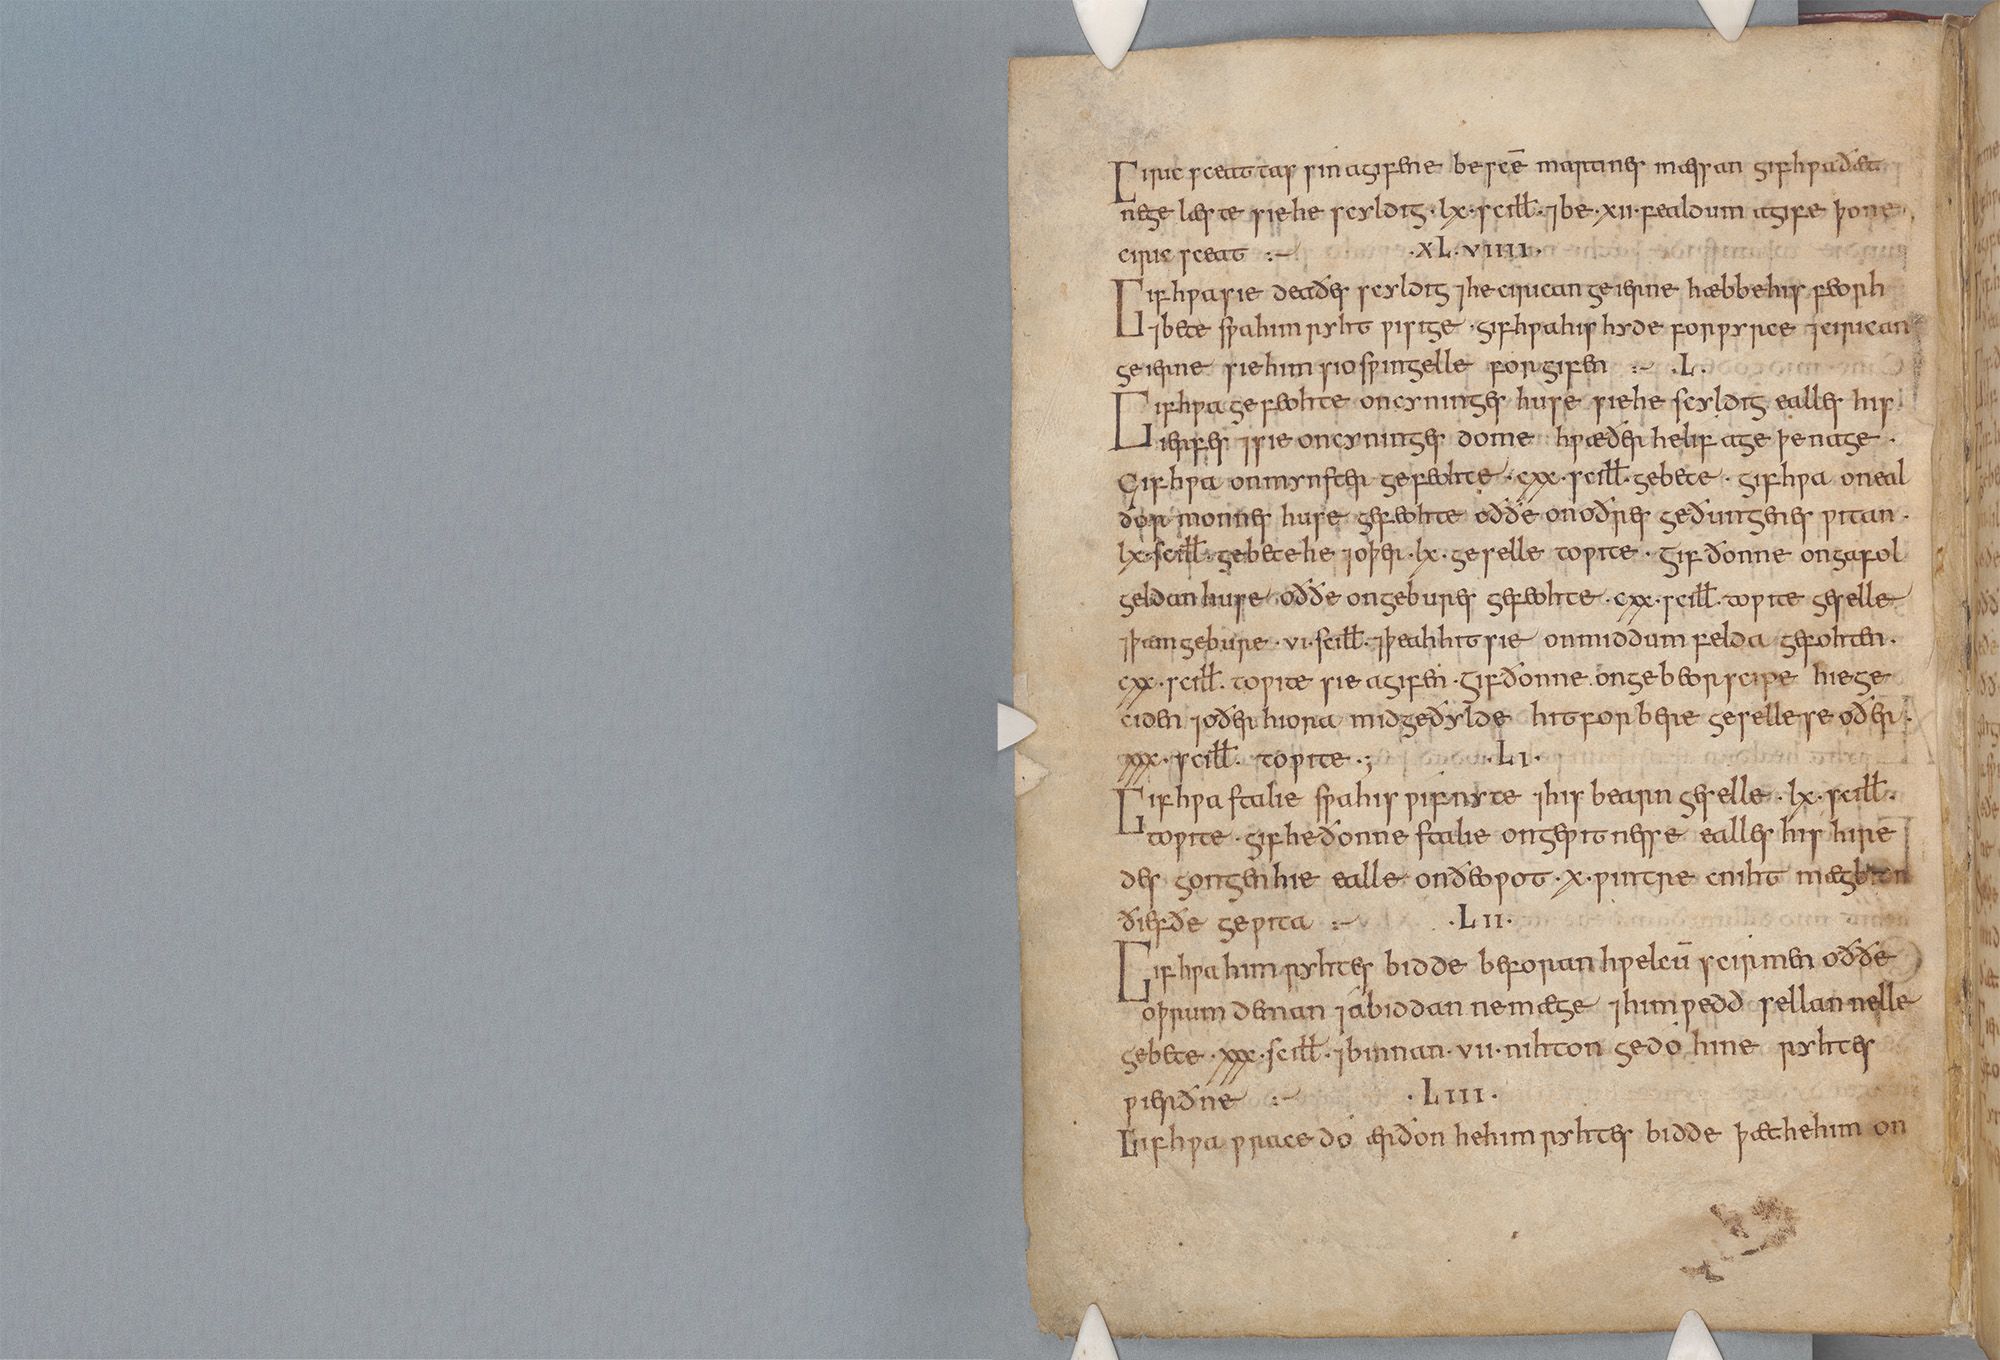 Ciric sceattas sin agifene be sc̄e martines mæssan gif hƿa ðæt
ne gelæste sie he scyldig ·lx· scill̄· ⁊ be ·xii· fealdum agife þone
ciric sceat :- ·XL·VIIII·
Gif hƿa sie deaðes scyldig ⁊ he cirican geierne hæbbe his feorh
⁊ bete sƿa him ryht ƿisige · gif hƿa his hyde forƿyrce ⁊ cirican
geierne sie him sio sƿingelle forgifen :- ·L·
Gif hƿa gefeohte on cyninges huse sie he scyldig ealles his
ierfes ⁊ sie on cyninges dome hƿæðer he lif age þe nage ·
Gif hƿa on mynster gefeohte ·cxx· scill̄· gebete · gif hƿa on eal
dor monnes huse gefeohte oððe on oðres geðungenes ƿitan ·
lx· scill̄· gebete he ⁊ oþer ·lx· geselle to ƿite · Gif ðonne on gafol
geldan huse oððe on gebures gefeohte ·cxx· scill̄· to ƿite geselle
⁊ þam gebure ·vi· scill̄· ⁊ þeah hit sie on middum felda gefohten ·
cxx· scill̄· to ƿite sie agifen · gif ðonne on gebeorscipe hie ge
ciden ⁊ oðer hiora mid geðylde hit forbere geselle se oðer ·
xxx· scill̄· to ƿite ·; ·LI·
Gif hƿa stalie sƿa his ƿif nyte ⁊ his bearn geselle ·lx· scill̄·
to ƿite · gif he ðonne stalie on geƿitnesse ealles his hire
des gongen hie ealle on ðeoƿot ·x· ƿintre cniht mæg bion
ðiefðe geƿita :- ·LII·
Gif hƿa him ryhtes bidde beforan hƿelcū scirmen oððe
oþrum deman ⁊ abiddan ne mæge ⁊ him ƿedd sellan nelle
gebete ·xxx· scill̄· ⁊ binnan ·vii· nihton gedo hine ryhtes
ƿierðne :- ·LIII·
Gif hƿa ƿrace do ærðon he him ryhtes bidde þæt he him on